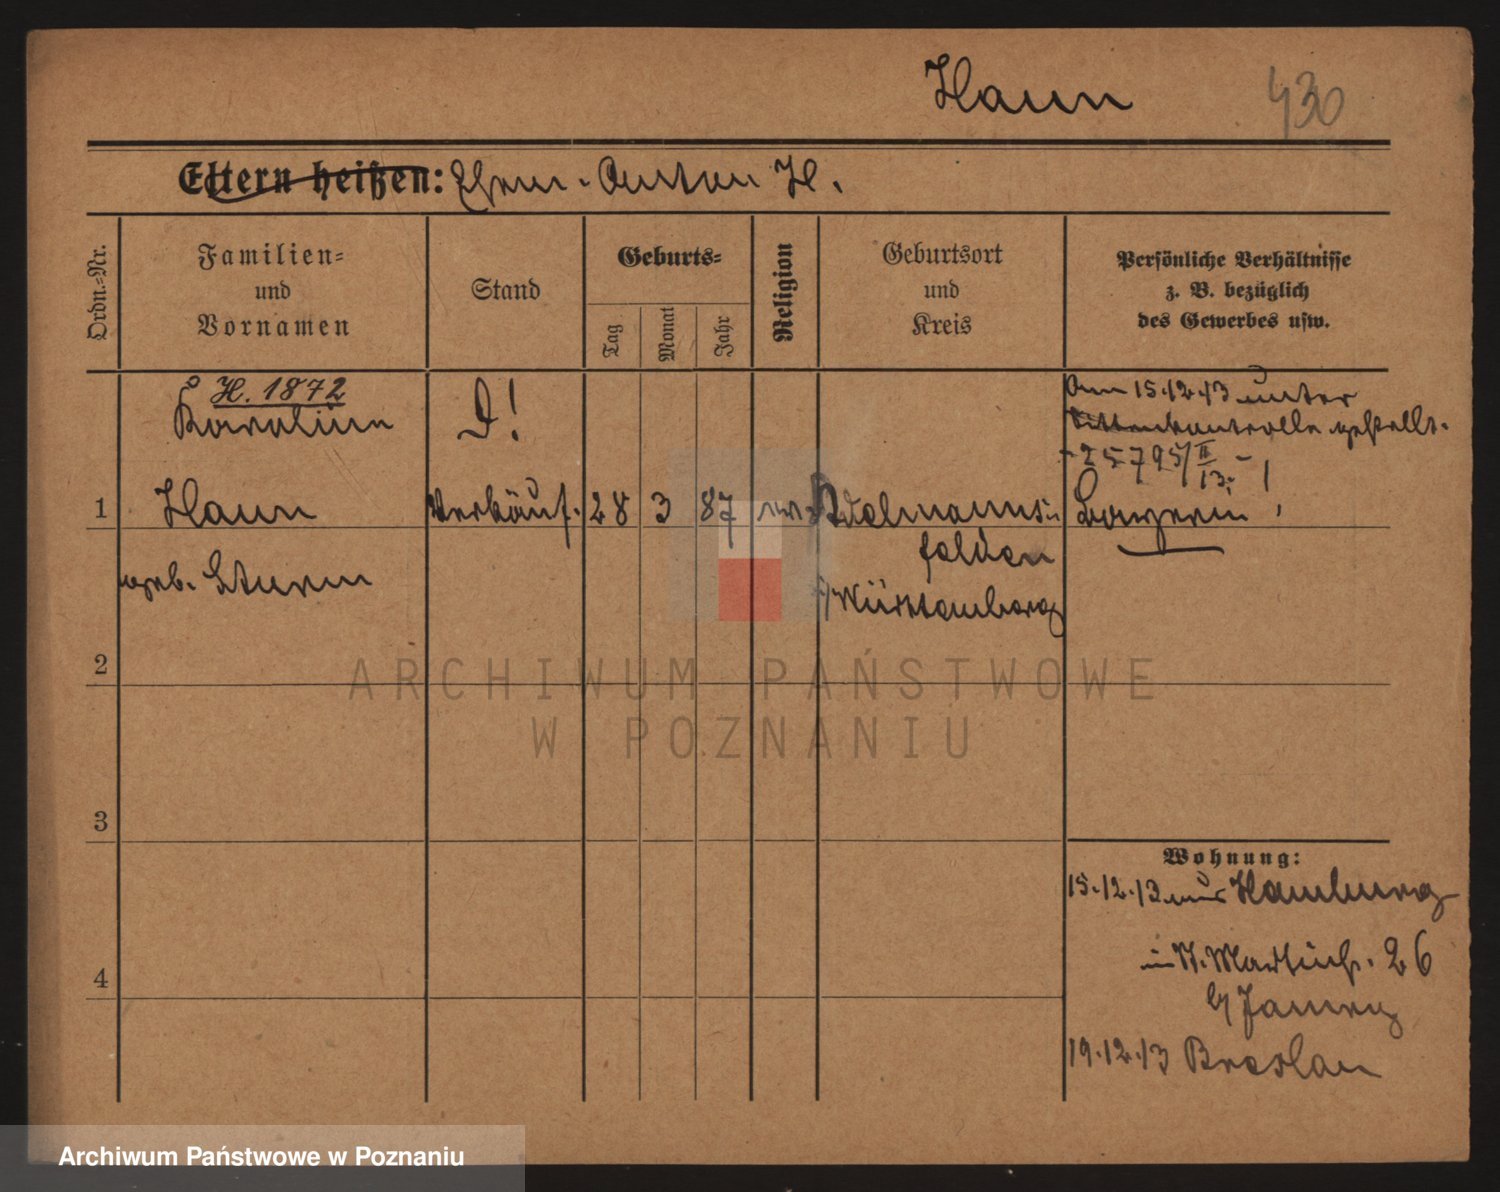 Haun
430
Eltern heißen: Ehem. Anton H.
Ordn.-Nr.
Familien-
und
Vornamen
Stand
Geburts-
Tag
Monat
Jahr
Religion
Geburtsort
und
Kreis
Persönliche Verhältnisse
z. B. bezüglich
des Gewerbes usw.
H. 1872
Karoline
D!
Am 15.12.13 unter
Sittenkontrolle gestellt.
- 25795/II 13. -
1
Haun
Verkäuf.
28
3
87
Adelmanns-
felden
geb. Sturm
Württemberg
2
3
4
Wohnung:
15.12.13 aus Hamburg
n. St. Martinstr. 26
b/
19.12.13 Breslau
ARCHIWUM PAŃSTWOWE
W POZNANIU
Archiwum Państwowe w Poznaniu